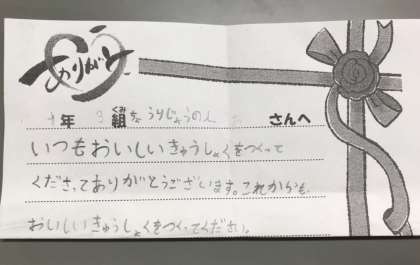 ありがとう
年 3 組 ちょうりじょうの人 さんへ
いつもおいしいきゅうしょくをつくって
くださってありがとうございます。これからも
おいしいきゅうしょくをつくってください。